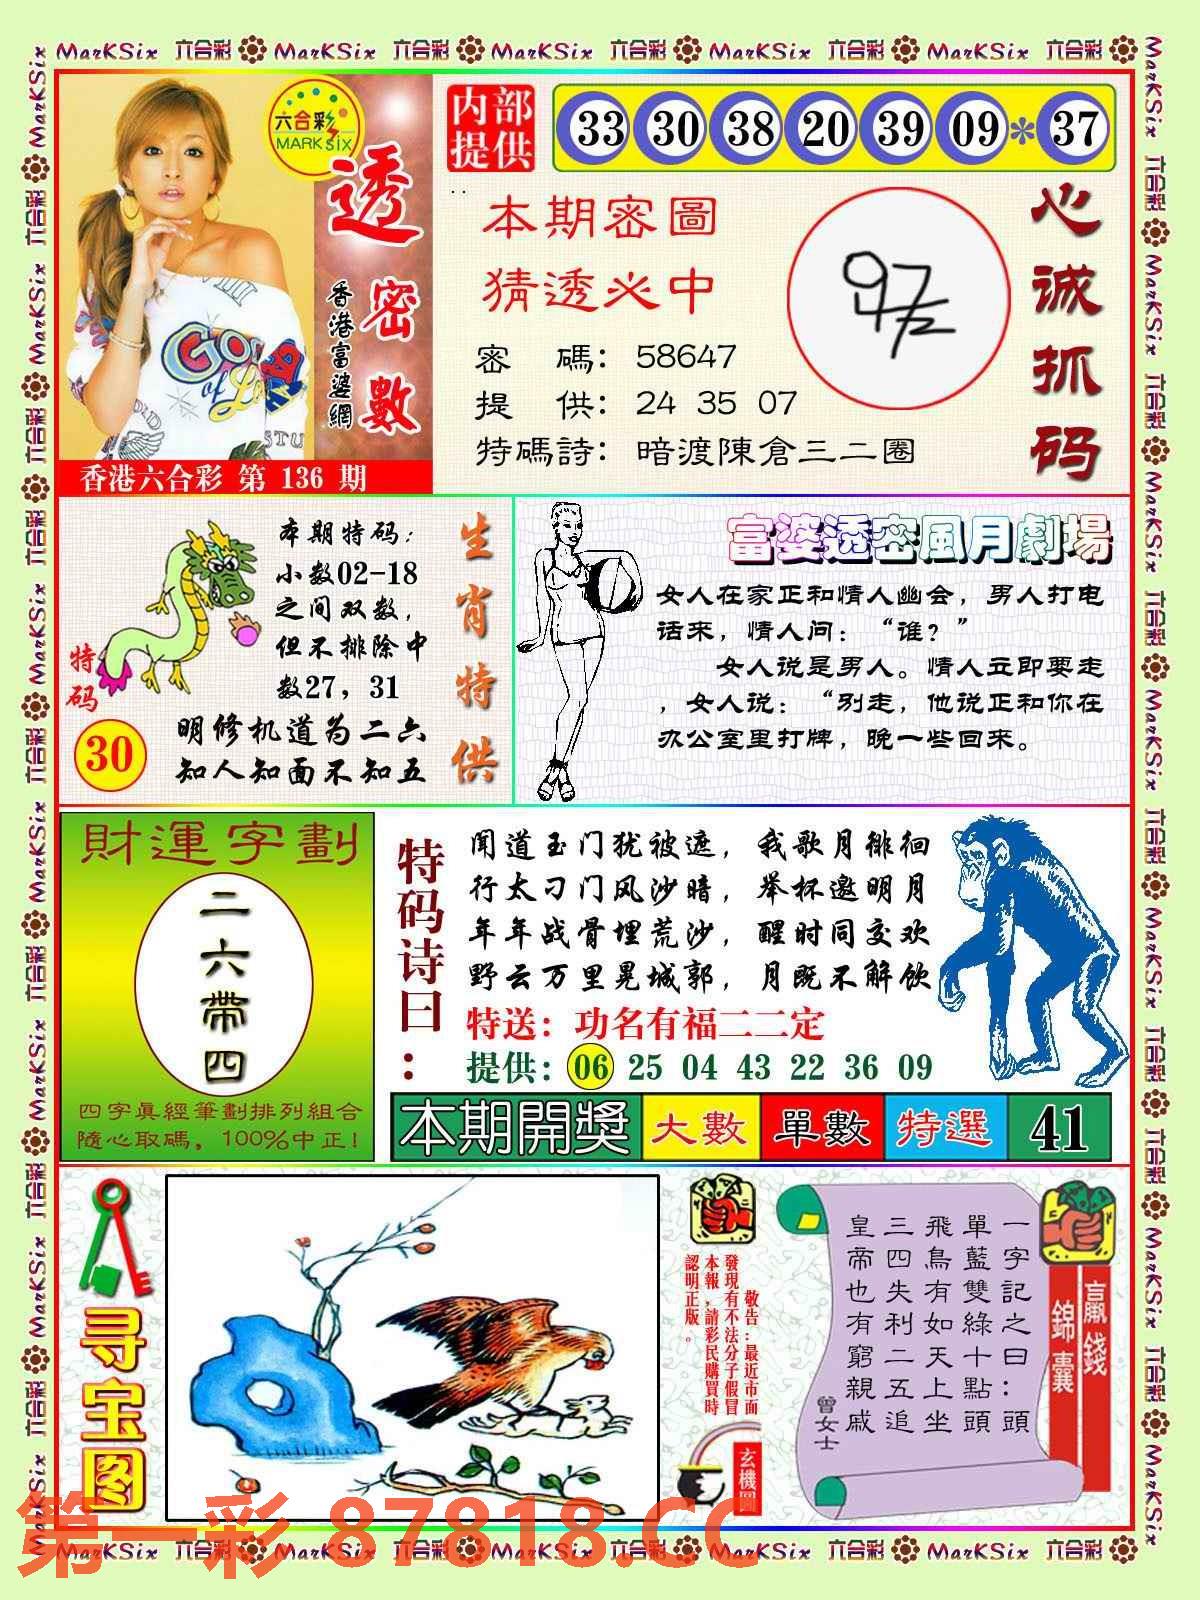 MarKSix 六合彩 MarKSix 六合彩 MarKSix 六合彩 MarKSix 六合彩 MarKSix 六合彩
六合彩
MARK SIX
透密數
香港富婆網
香港六合彩 第 136 期
内部
提供
33 30 38 20 39 09 * 37
本期密圖
猜透必中
密 碼：58647
提 供：24 35 07
特碼詩：暗渡陳倉三二圈
心诚抓码
本期特码：
小数02-18
之间双数，
但不排除中
数27，31
特码
30
明修机道为二六
知人知面不知五
生肖特供
富婆透密風月劇場
女人在家正和情人幽会，男人打电
话来，情人问：“谁？”
女人说是男人。情人立即要走
，女人说：“别走，他说正和你在
办公室里打牌，晚一些回来。
財運字劃
二六帶四
四字真經筆劃排列組合
隨心取碼，100%中正！
特码诗曰：
闻道玉门犹被遮，我歌月徘徊
行太刁门风沙暗，举杯邀明月
年年战骨埋荒沙，醒时同交欢
野云万里晃城郭，月既不解饮
特送：功名有福二二定
提供：06 25 04 43 22 36 09
本期開獎 大數 單數 特選 41
寻宝图
敬告：最近市面
發現有不法分子假冒
本報，請彩民購買時
認明正版。
玄機圖
一字記之曰：頭
單藍雙綠十點頭
飛鳥有如天上坐
三四失利二五追
皇帝也有窮親戚
曾女士
贏錢
錦囊
第一彩 87818.CC
MarKSix 六合彩 MarKSix 六合彩 MarKSix 六合彩 MarKSix 六合彩 MarKSix 六合彩